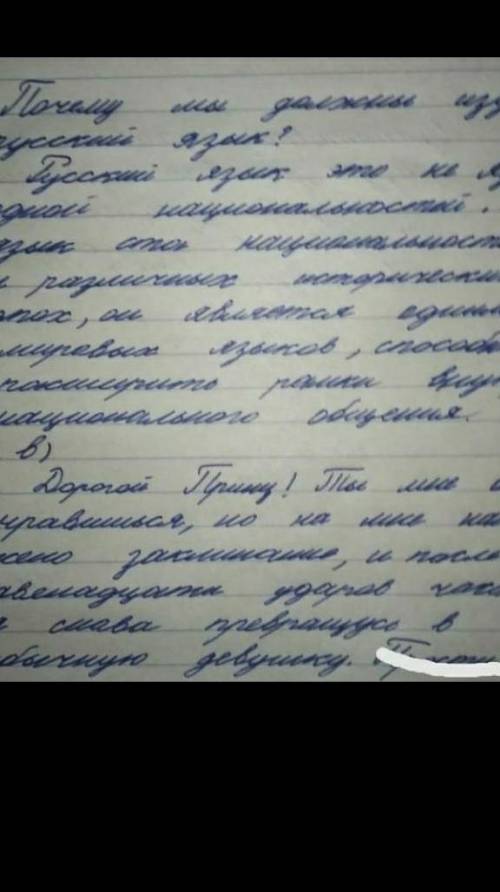 Почему мы должны изу
русский язык?
Русский язык это не я
одной национальностей.
язык ста национальност
и различных исторически
эпох, он является едины
мировых языков, способ
расширить рамки внут
национального общения.
в)
Дорогой Принц! Ты мне
нравишься, но на мне на
жено заклинание, и после
двенадцати ударов час
я снова превращусь в
обычную девушку.